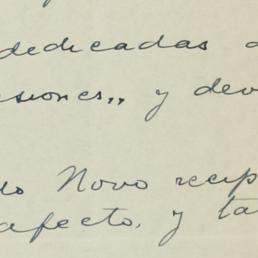 dedicadas a
esiones,, y dev
do Novo recip
afecto, y ta